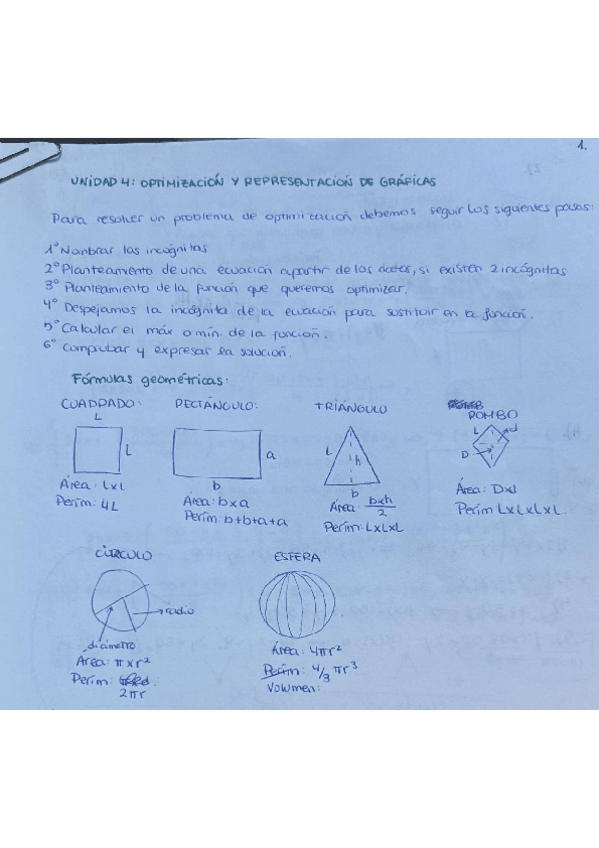 1.
UNIDAD 4: OPTIMIZACIÓN Y REPRESENTACIÓN DE GRÁFICAS
Para resolver un problema de optimización debemos seguir los siguientes pasos:
1º Nombrar las incógnitas
2º Planteamento de una ecuación a partir de los datos, si existen 2 incógnitas
3º Planteamiento de la función que queremos optimizar.
4º Despejamos la incógnita de la ecuación para sustituir en la función.
5º Calcular el máx o mín. de la función.
6º Comprobar y expresar la solución.
Fórmulas geométricas:
CUADRADO:
L
L
Área: LxL
Perim: 4L
RECTÁNGULO:
a
b
Área: bxa
Perim: b+b+a+a
TRIÁNGULO
L
h
b
Área: bxh/2
Perim: LxLxL
ROMBO
L
d
D
Área: Dxd
Perim LxLxLxL.
CÍRCULO
radio
diámetro
Área: πxr²
Perim:
2πr
ESFERA
Área: 4πr²
Perim: 4/3 πr³
Volumen: